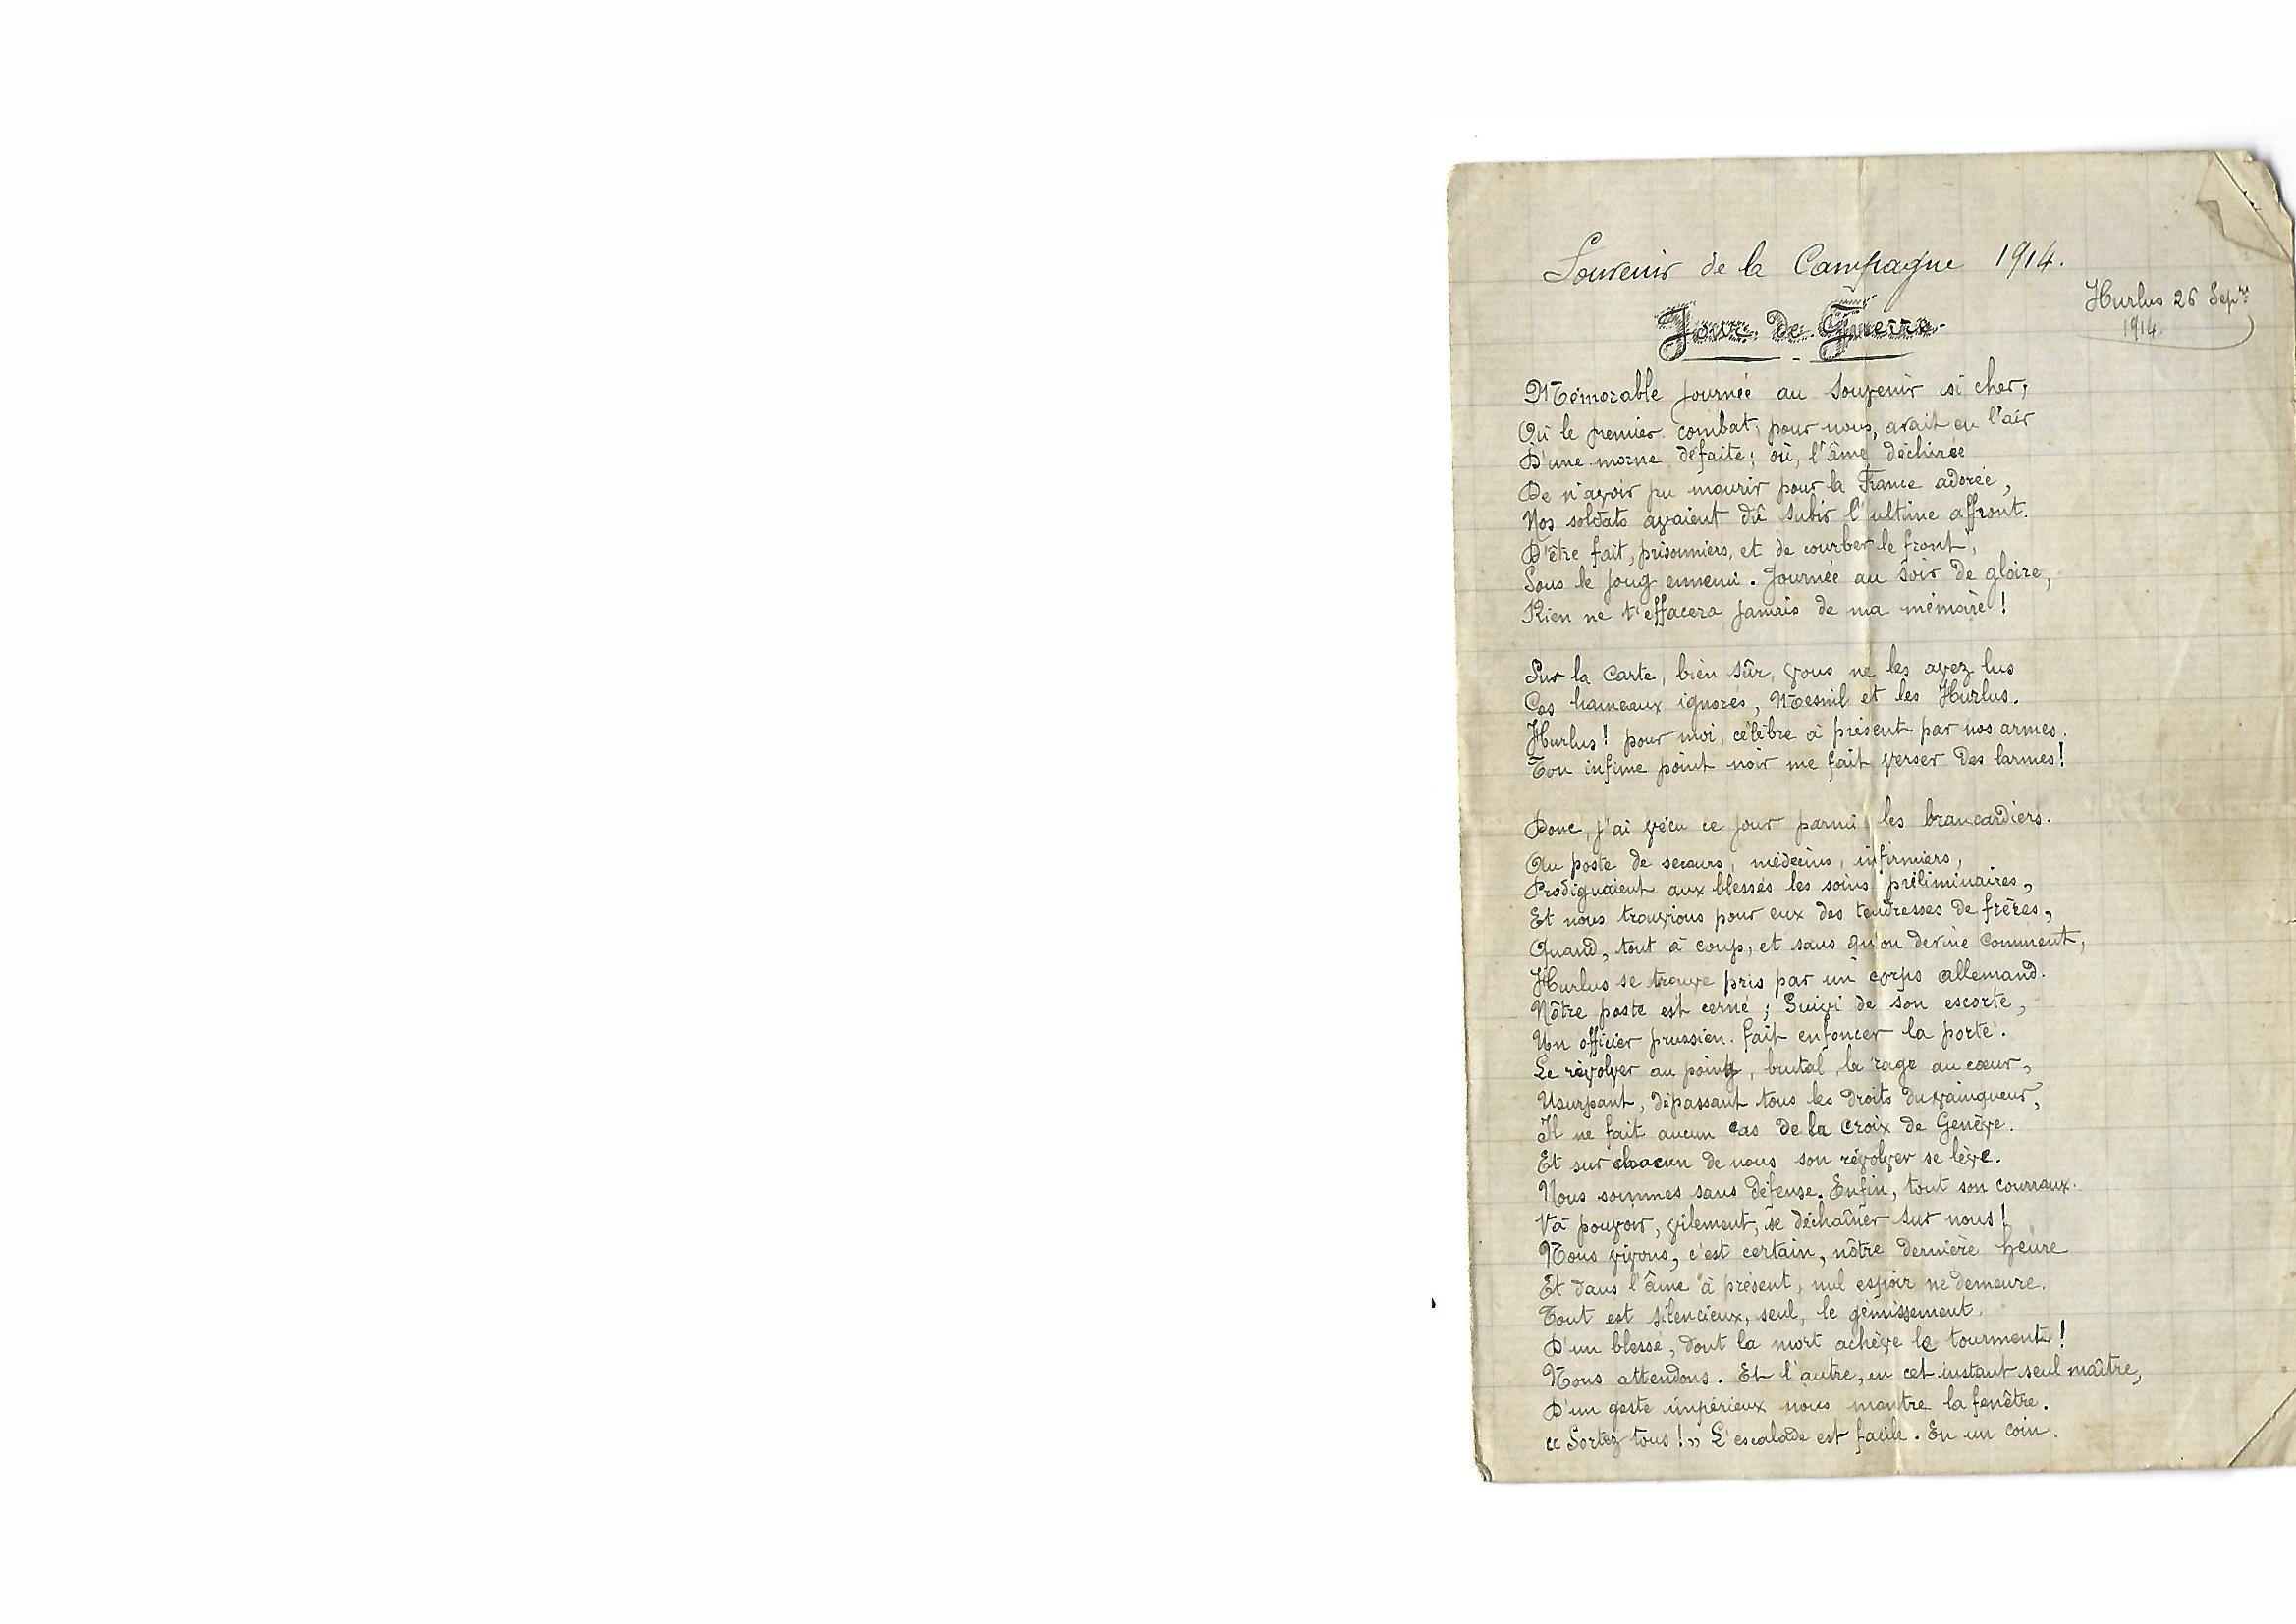 Souvenir de la Campagne 1914.
Hurlus 26 Sepre
1914.
Jour de Guerre.
Mémorable journée au souvenir si cher,
Où le premier combat, pour nous, avait eu l'air
D'une morne défaite; où, l'âme déchirée
De n'avoir pu mourir pour la France adorée,
Nos soldats avaient dû subir l'ultime affront.
D'être fait, prisonniers, et de courber le front,
Sous le joug ennemi. Journée au soir de gloire,
Rien ne t'effacera jamais de ma mémoire!
Sur la carte, bien sûr, vous ne les avez lus
Ces hameaux ignorés, Mesnil et les Hurlus.
Hurlus! pour moi, célèbre à présent par nos armes.
Ton infime point noir me fait verser des larmes!
Donc, j'ai vécu ce jour parmi les brancardiers.
Au poste de secours, médecins, infirmiers,
Prodiguaient aux blessés les soins préliminaires,
Et nous trouvions pour eux des tendresses de frères,
Quand, tout à coup, et sans qu'on devine comment,
Hurlus se trouve pris par un corps allemand.
Nôtre poste est cerné; Suivi de son escorte,
Un officier prussien. fait enfoncer la porte.
Le révolver au poing, brutal, la rage au cœur,
Usurpant, dépassant tous les droits du vainqueur,
Il ne fait aucun cas de la croix de Genève.
Et sur chacun de nous son révolver se lève.
Nous sommes sans défense. Enfin, tout son courroux.
Va pouvoir, vilement, se déchaîner sur nous!
Nous vivons, c'est certain, nôtre dernière heure
Et dans l'âme à présent, nul espoir ne demeure.
Tout est silencieux, seul, le gémissement.
D'un blessé, dont la mort achève le tourment!
Nous attendons. Et l'autre, en cet instant seul maître,
D'un geste impérieux nous montre la fenêtre.
« Sortez tous! » L'escalade est facile. En un coin.